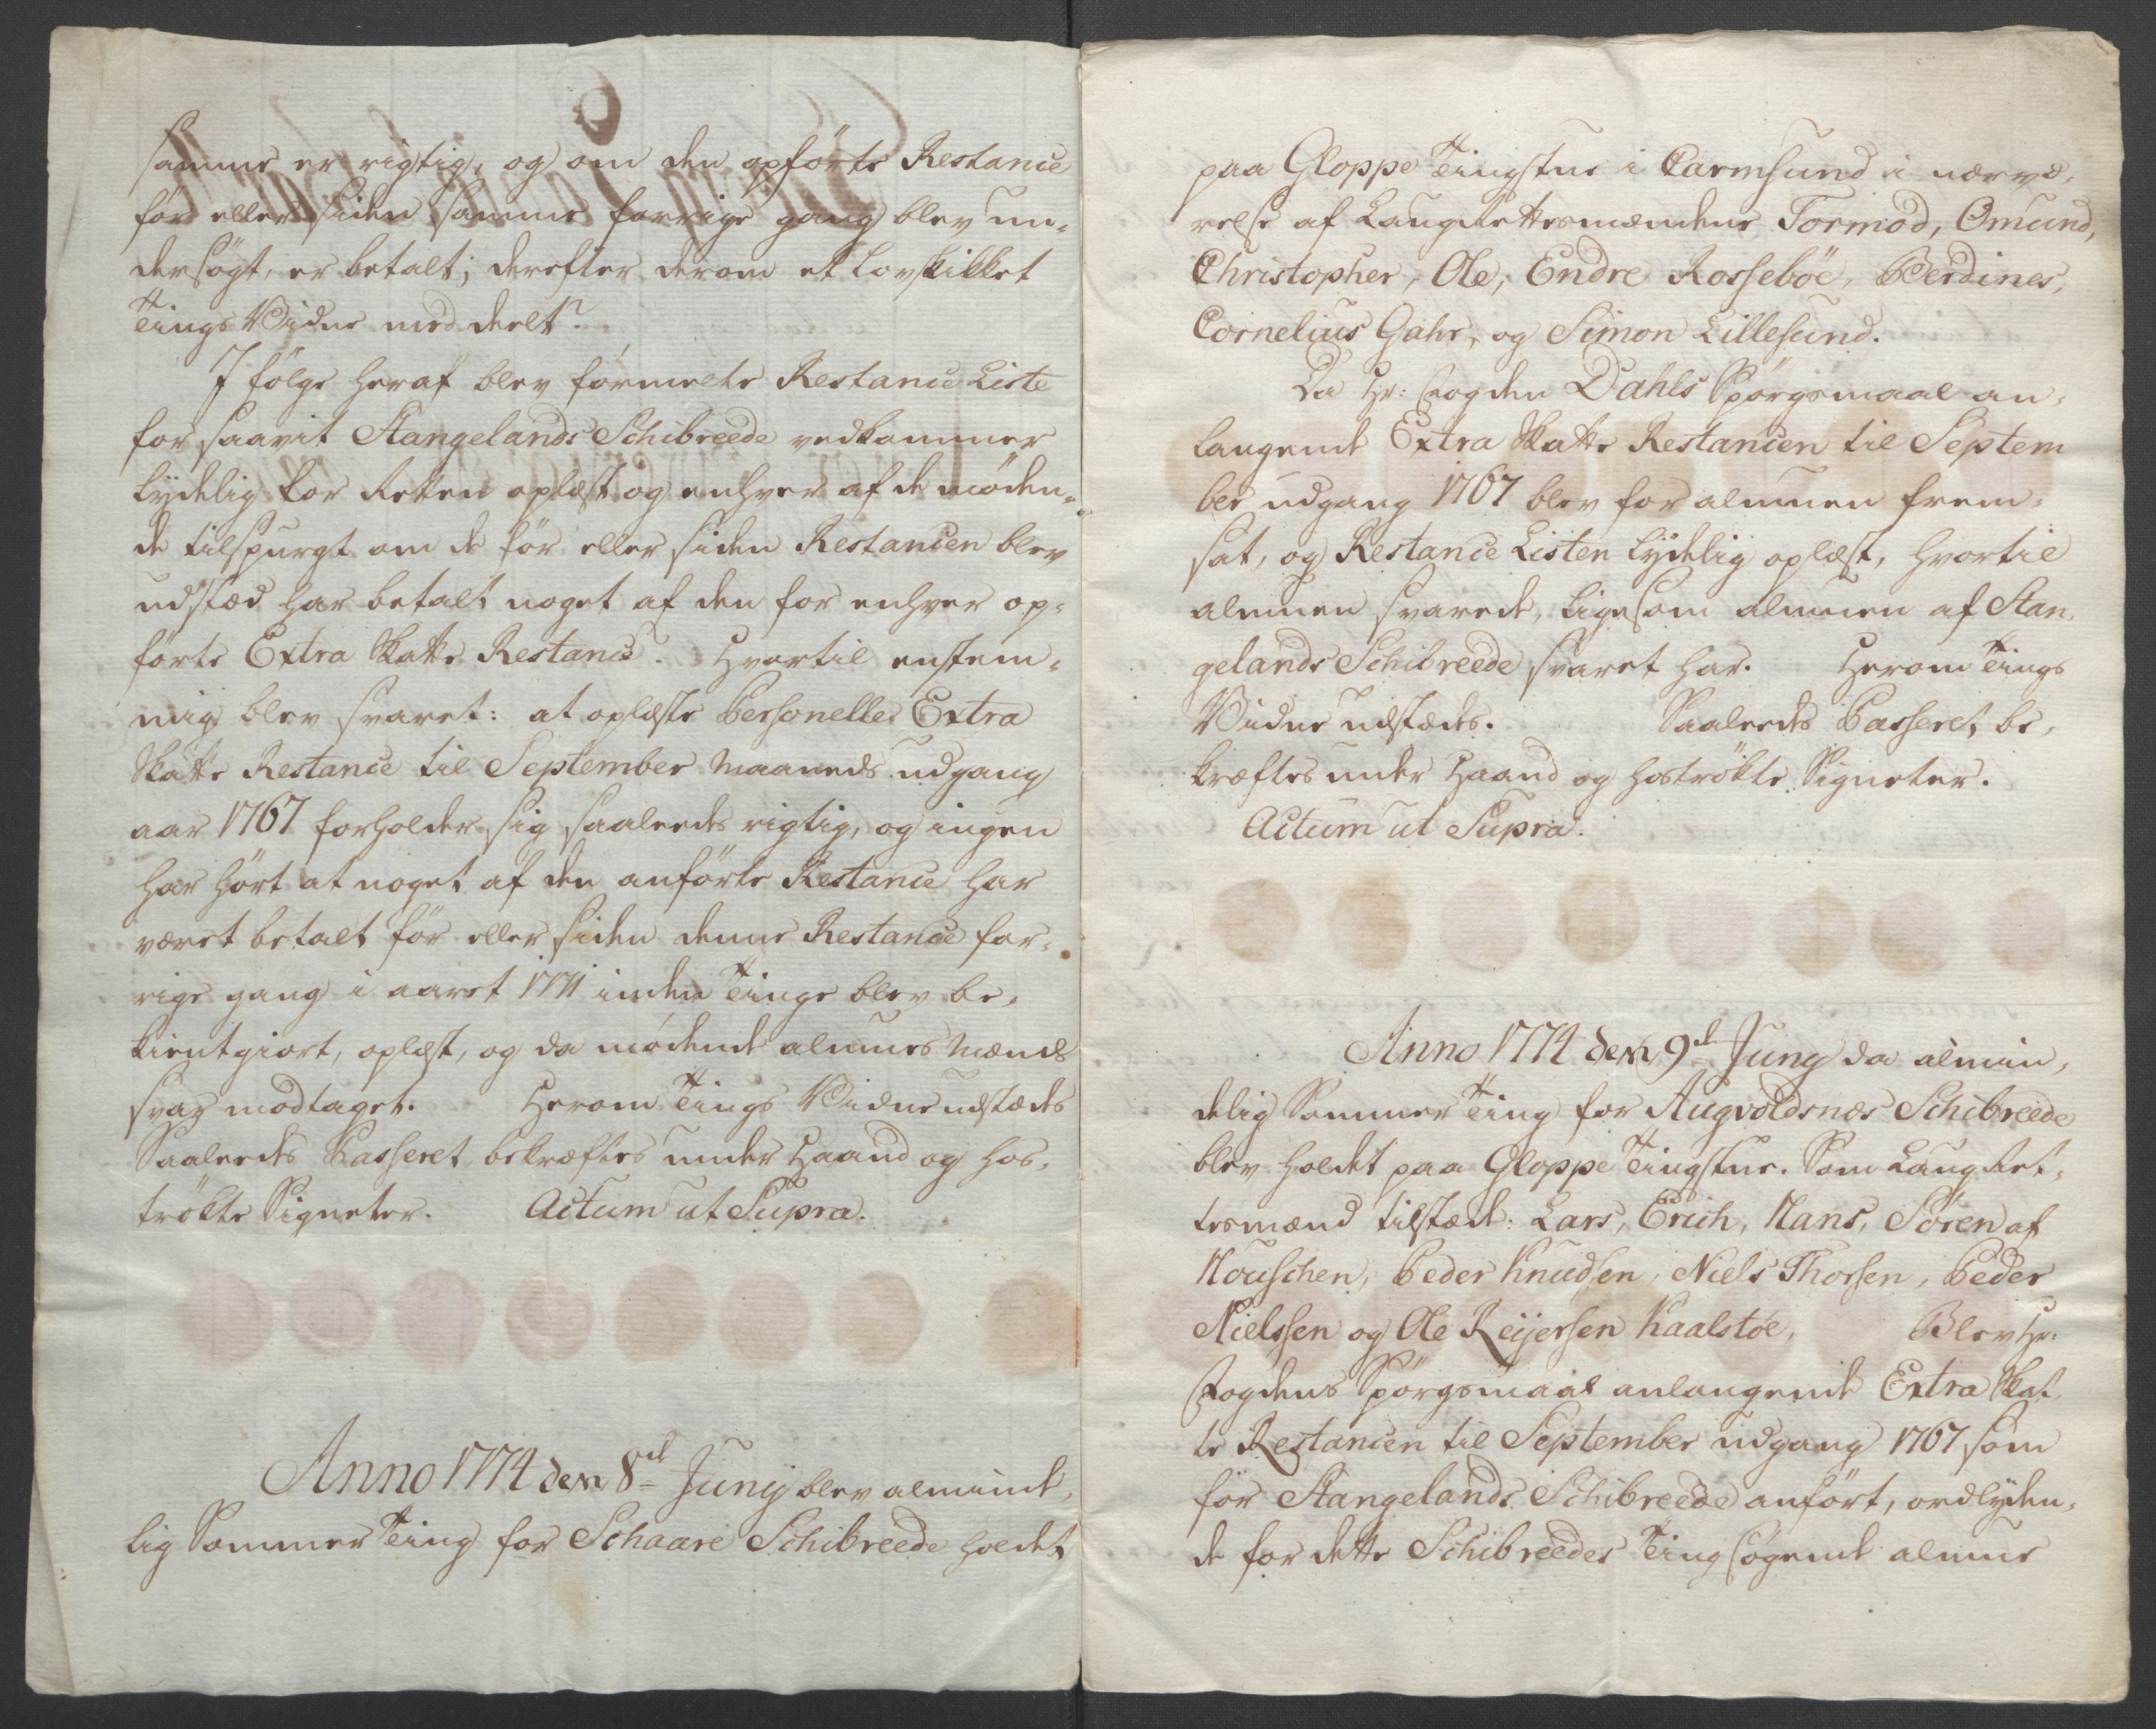 samme er rigtig, og om den opförte Restance
för eller siden samme forrige gang blev un-
dersögt, er betalt; derefter derom et lovskikket
Tings Vidne med deelt?
I fölge heraf blev formelte Restance Liste
for saavit Stangelands Schibreede vedkommer
lydelig for Retten oplæst og enhver af de möden-
de tilspurgt om de för eller siden Restancen blev
udstæd har betalt noget af den for enhver op-
förte Extra Skatte Restance. Hvortil enstem-
mig blev svaret: at oplæste Personelle Extra
Skatte Restance til September Maaneds udgang
aar 1767 forholder sig saaleedes rigtig, og ingen
har hört at noget af den anförte Restance har
været betalt för eller siden denne Restance for-
rige gang i aaret 1771 inden Tinge blev be-
kientgiort, oplæst, og da mödende almues Mænds
svar modtaget. Herom Tings Vidne udstædes
Saaleedes Passeret, bekræftes under Haand og hos-
trökte Signeter. Actum ut Supra.
Anno 1774 den 8de Junij blev almind-
lig Sommer Ting for Schaare Schibreede holdet
paa Gloppe Tingstue i Carmsund i nærvæ-
relse af Laugrettesmændene Tormod, Omund,
Christopher, Ole, Endre Rosseböe, Berdines,
Cornelius Gahr, og Simon Lillesund.
Da Hr: Fogden Dahls Spörgsmaal an-
langende Extra Skatte Restancen til Septem
ber udgang 1767 blev for almuen frem-
sat, og Restance Listen lydelig oplæst, hvortil
almuen svarede, ligesom almuen af Stan-
gelands Schibreede svaret har. Herom Tings
Vidne udstædes. Saaleedes Passeret, be-
kræftes under Haand og hoströkte Signeter.
Actum ut Supra.
Anno 1774 den 9de Junij da almin-
delig Sommer Ting for Augvoldsnæs Schibreede
blev holdet paa Gloppe Tingstue. Som Laugret-
tesmænd tilstæde: Lars, Erich, Hans, Sören af
Houschen, Peder Knudsen, Niels Thorsen, Peder
Nielssen og Ole Reijersen Kaalstöe, Blev Hr:
Fogdens Spörgsmaal anlangende Extra Skat
te Restancen til September udgang 1767 som
för Stangelands Schibreede anfört, ordlyden-
de for dette Schibreedes Ting sögende almue